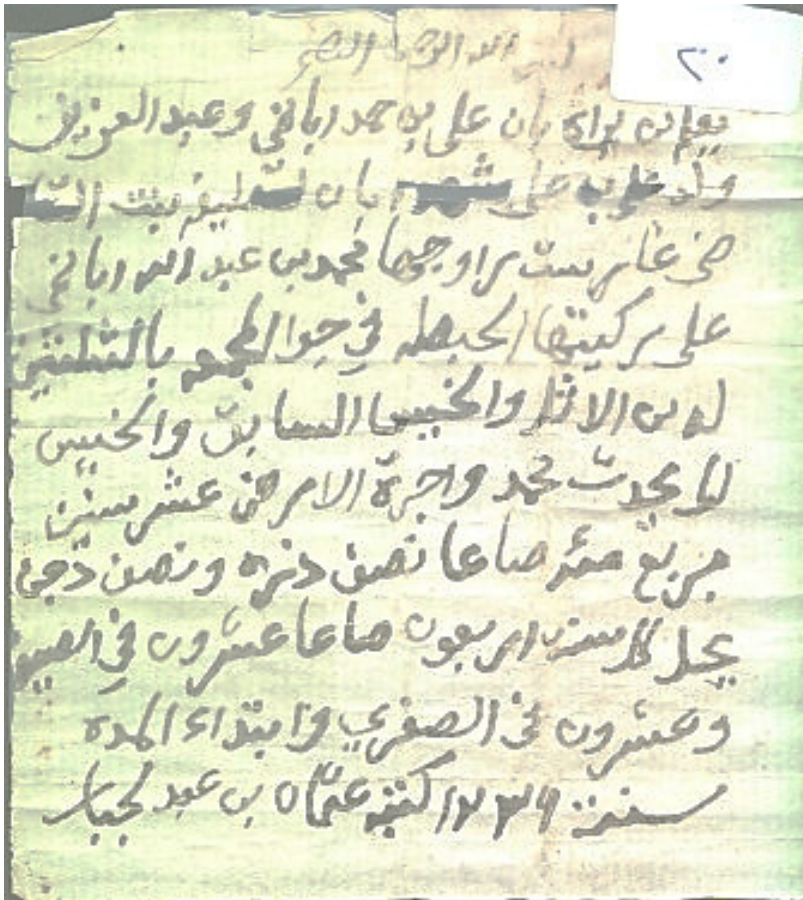 ٢٠٠
بسم الله الرحمن الرحيم
يعلم من يراه بان علي بن حمد اباغي وعبد العزيز
ولد علي شهد بان لطيفه بنت
زوجها محمد بن عبد الله اباغي
على ركيتها الحيطه في بالثلثين
له من الاثل والخيس السابق والخيس
لما يحدث محمد واجرة الارض عشر سنين
مئة صاعا نصف ذره ونصف دخن
يحل كل سنه اربعون صاعا عشرون في الصيف
وعشرون في الصفري وابتداء المده
سنة ١٢٣٩ كتبه عثمان بن عبد الجبار